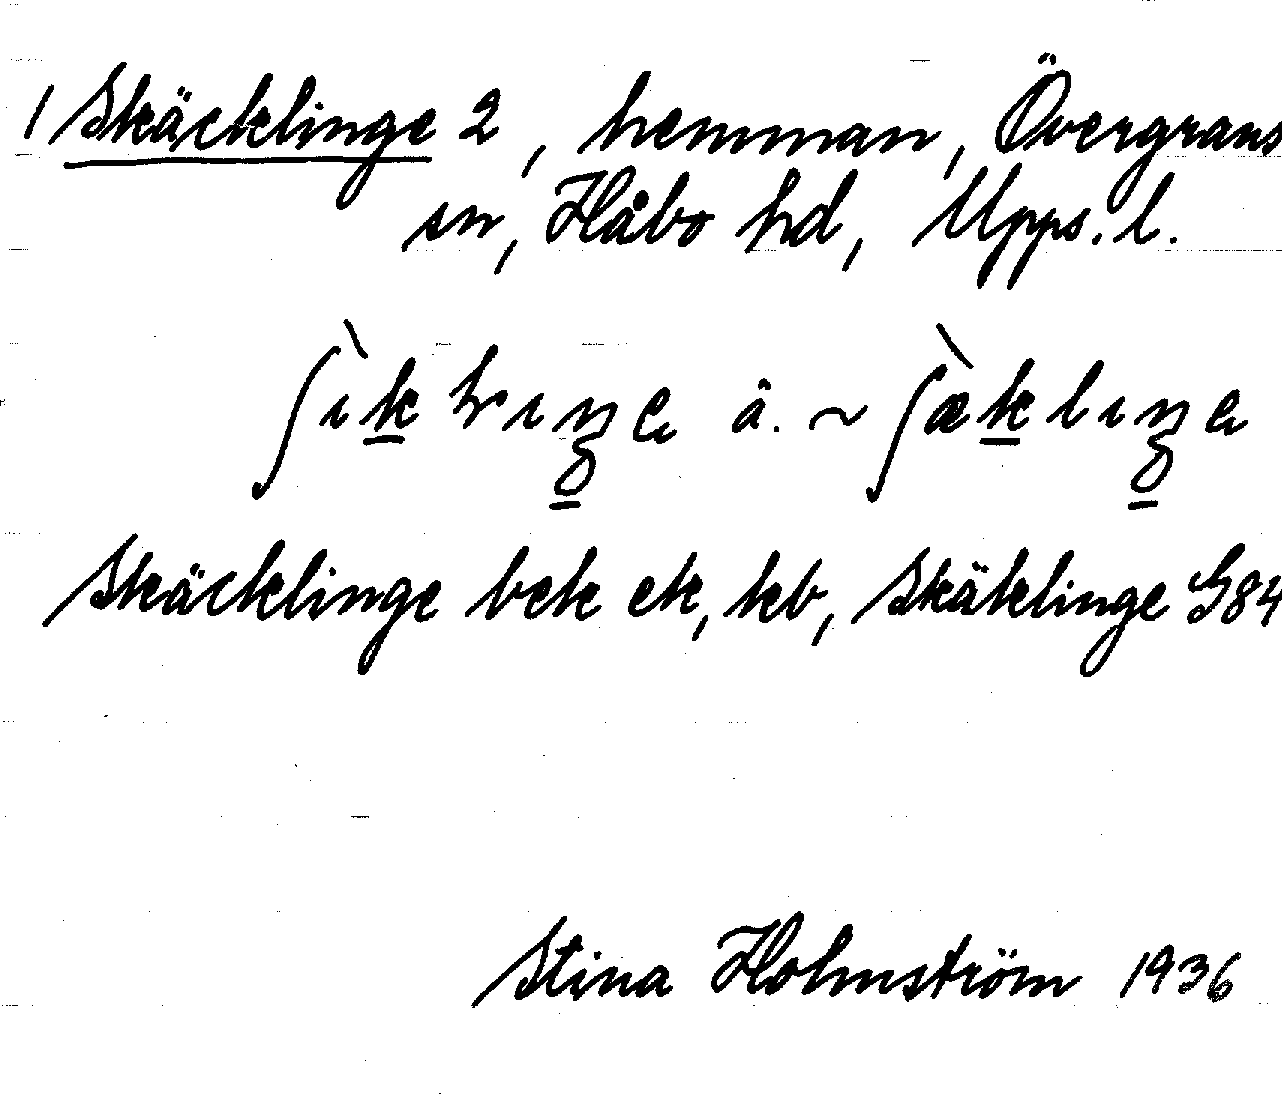 1 Skäcklinge 2, hemman, Övergrans
sn, Håbo hd, Upps. l.
ä. ~
Skäcklinge bek ek, kb, Skäklinge G84
Stina Holmström 1936